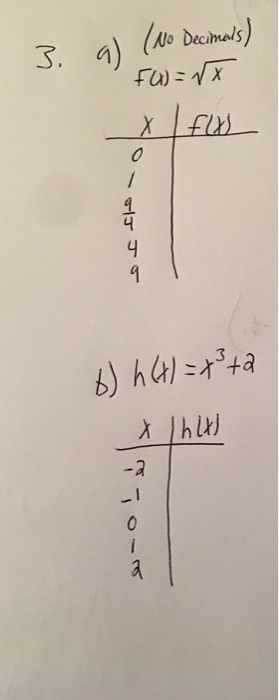 3. a) (No Decimals)
f(x) = √x
x | f(x)
0
1
9/4
4
9
b) h(x) = x³+2
x | h(x)
-2
-1
0
1
2